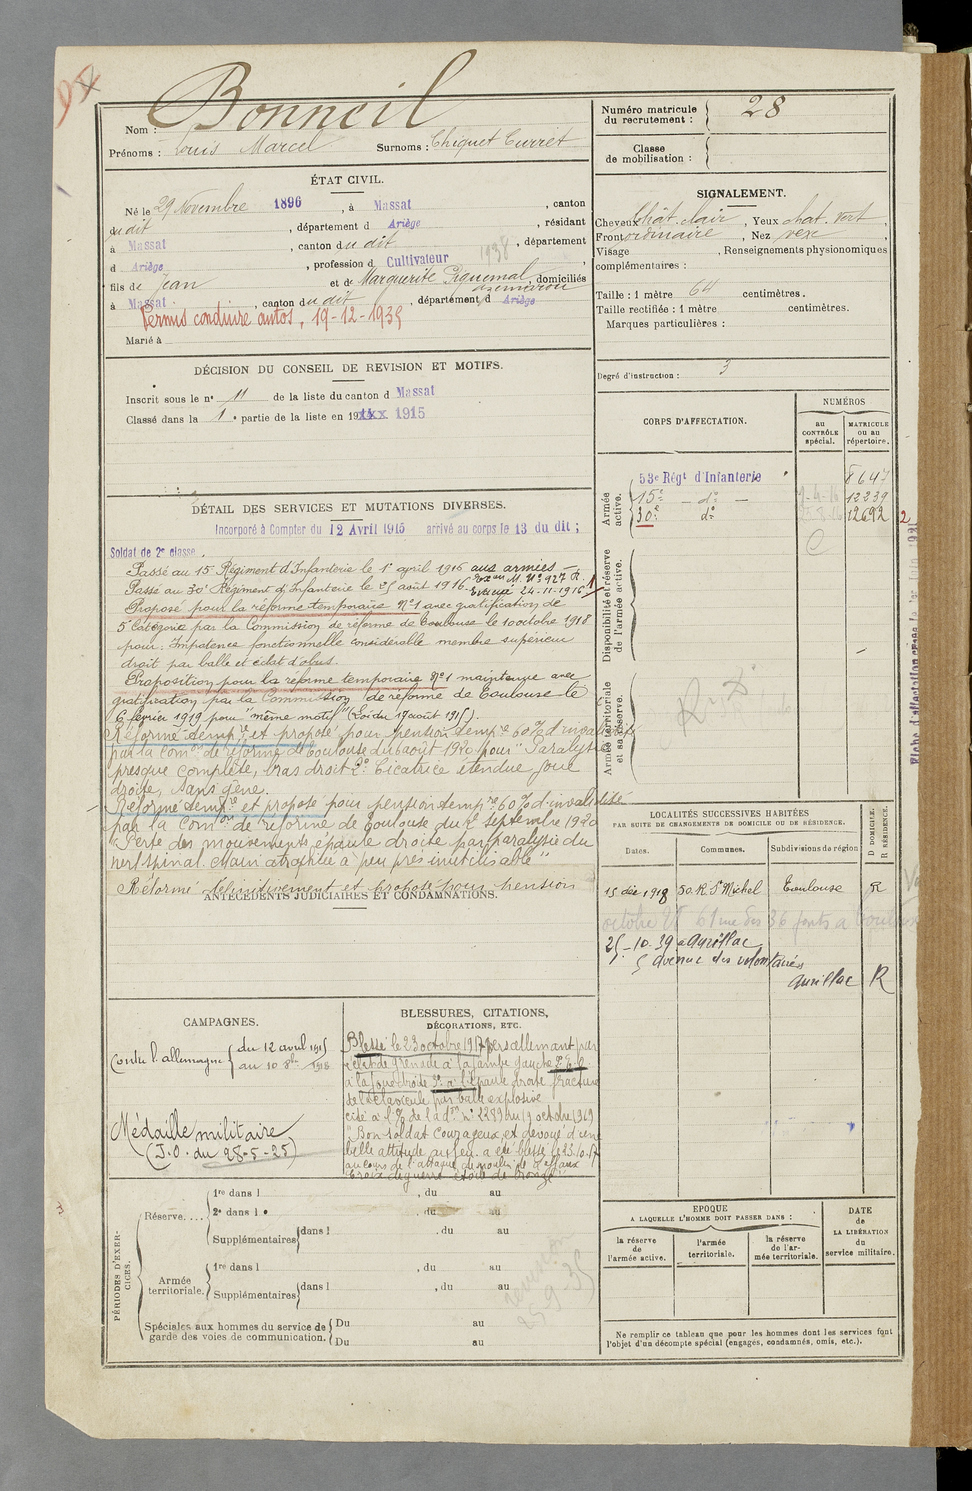 Bonneil
Nom :
Prénoms : Louis Marcel Surnoms : Chiquet Curret
Numéro matricule du recrutement : 28
Classe de mobilisation :
ÉTAT CIVIL.
Né le 29 Novembre 1896, à Massat, canton
du dit, département d Ariège, résidant
à Massat, canton du dit, département
d Ariège, profession d Cultivateur 1938
fils de Jean et de Marguerite Piquemal, domiciliés
à Massat, canton du dit, département d Ariège
Permis conduire autos, 19-12-1935
Marié à
SIGNALEMENT.
Cheveux chât. clair, Yeux chat. vert,
Front ordinaire, Nez vexe,
Visage , Renseignements physionomiques
complémentaires :
Taille : 1 mètre 64 centimètres.
Taille rectifiée : 1 mètre centimètres.
Marques particulières :
Degré d'instruction : 3
DÉCISION DU CONSEIL DE REVISION ET MOTIFS.
Inscrit sous le n° 11 de la liste du canton d Massat
Classé dans la 1e partie de la liste en 191 xx 1915
CORPS D'AFFECTATION.
NUMÉROS
au CONTRÔLE spécial.
MATRICULE ou au répertoire.
Armée active.
53e Régt d'Infanterie 8647
15e - d° - 9-4-16 12239
30e d° 12692 2
C
Disponibilité et réserve de l'armée active.
Armée territoriale et sa réserve.
DÉTAIL DES SERVICES ET MUTATIONS DIVERSES.
Incorporé à Compter du 12 Avril 1915 arrivé au corps le 13 du dit ;
Soldat de 2e classe.
Passé au 15e Régiment d'Infanterie le 1er april 1916 aux armées -
Passé au 30e Régiment d'Infanterie le 25 août 1916. au M. N° 927 R.
Evacué 24-11-1916 1
Proposé pour la réforme temporaire N°1 avec gratification de
5e Catégorie par la Commission de réforme de Toulouse le 10 octobre 1918
pour : Impotence fonctionnelle considérable membre supérieur
droit par balle et éclat d'obus.
Proposition pour la réforme temporaire N°1 maintenue avec
gratification par la Commission de réforme de Toulouse le
6 février 1919 pour "même motif" (Loi du 17 août 1915).
Réformé tempre et proposé pour pension tempre 60% d'invalidité
par la Comon de réforme de Toulouse du 6 août 1920 pour "Paralysie
presque complète, bras droit 2° Cicatrice étendue joue
droite, sans gêne.
Réformé tempre et proposé pour pension tempre 60% d'invalidité
par la Comon de réforme de Toulouse du 2 septembre 1920
"Perte des mouvements, épaule droite par paralysie du
nerf spinal. Main atrophiée à peu près inutilisable"
Réformé définitivement et proposé pour pension
ANTÉCÉDENTS JUDICIAIRES ET CONDAMNATIONS.
LOCALITÉS SUCCESSIVES HABITÉES
PAR SUITE DE CHANGEMENTS DE DOMICILE OU DE RÉSIDENCE.
Dates. Communes. Subdivisions de région D DOMICILE. R RÉSIDENCE.
15 déc 1918 50. R. St Michel Toulouse R
octobre 61 rue des 36 ponts a Toulouse
25-10-39 a Aurillac
5 avenue des volontaires
Aurillac R
CAMPAGNES.
Contre l'allemagne du 12 avril 1915
au 10 8bre 1918
Médaille militaire
(J.O. du 28-5-25)
BLESSURES, CITATIONS,
DÉCORATIONS, ETC.
Blessé le 23 octobre 1917 par
éclat de grenade à la jambe gauche
à la joue droite 3° à l'épaule droite fracture
de la clavicule par balle explosive
cité à l'O/ de la don n° 2289 du 19 octobre 1919
"Bon soldat courageux et dévoué d'une
belle attitude au feu. a été blessé le 23.10.17
au cours de l'attaque du moulin de Laffaux
Croix de guerre étoile de bronze"
PÉRIODES D'EXERCICES.
Réserve....
1re dans l , du au
2e dans l , du au
Supplémentaires dans l , du au
Armée territoriale.
1re dans l , du au
Supplémentaires dans l , du au
Spéciales aux hommes du service de garde des voies de communication. Du au
Du au
25-9-35
EPOQUE
A LAQUELLE L'HOMME DOIT PASSER DANS :
la réserve de l'armée active.
l'armée territoriale.
la réserve de l'armée territoriale.
DATE de LA LIBÉRATION du service militaire.
Ne remplir ce tableau que pour les hommes dont les services font
l'objet d'un décompte spécial (engagés, condamnés, omis, etc.).